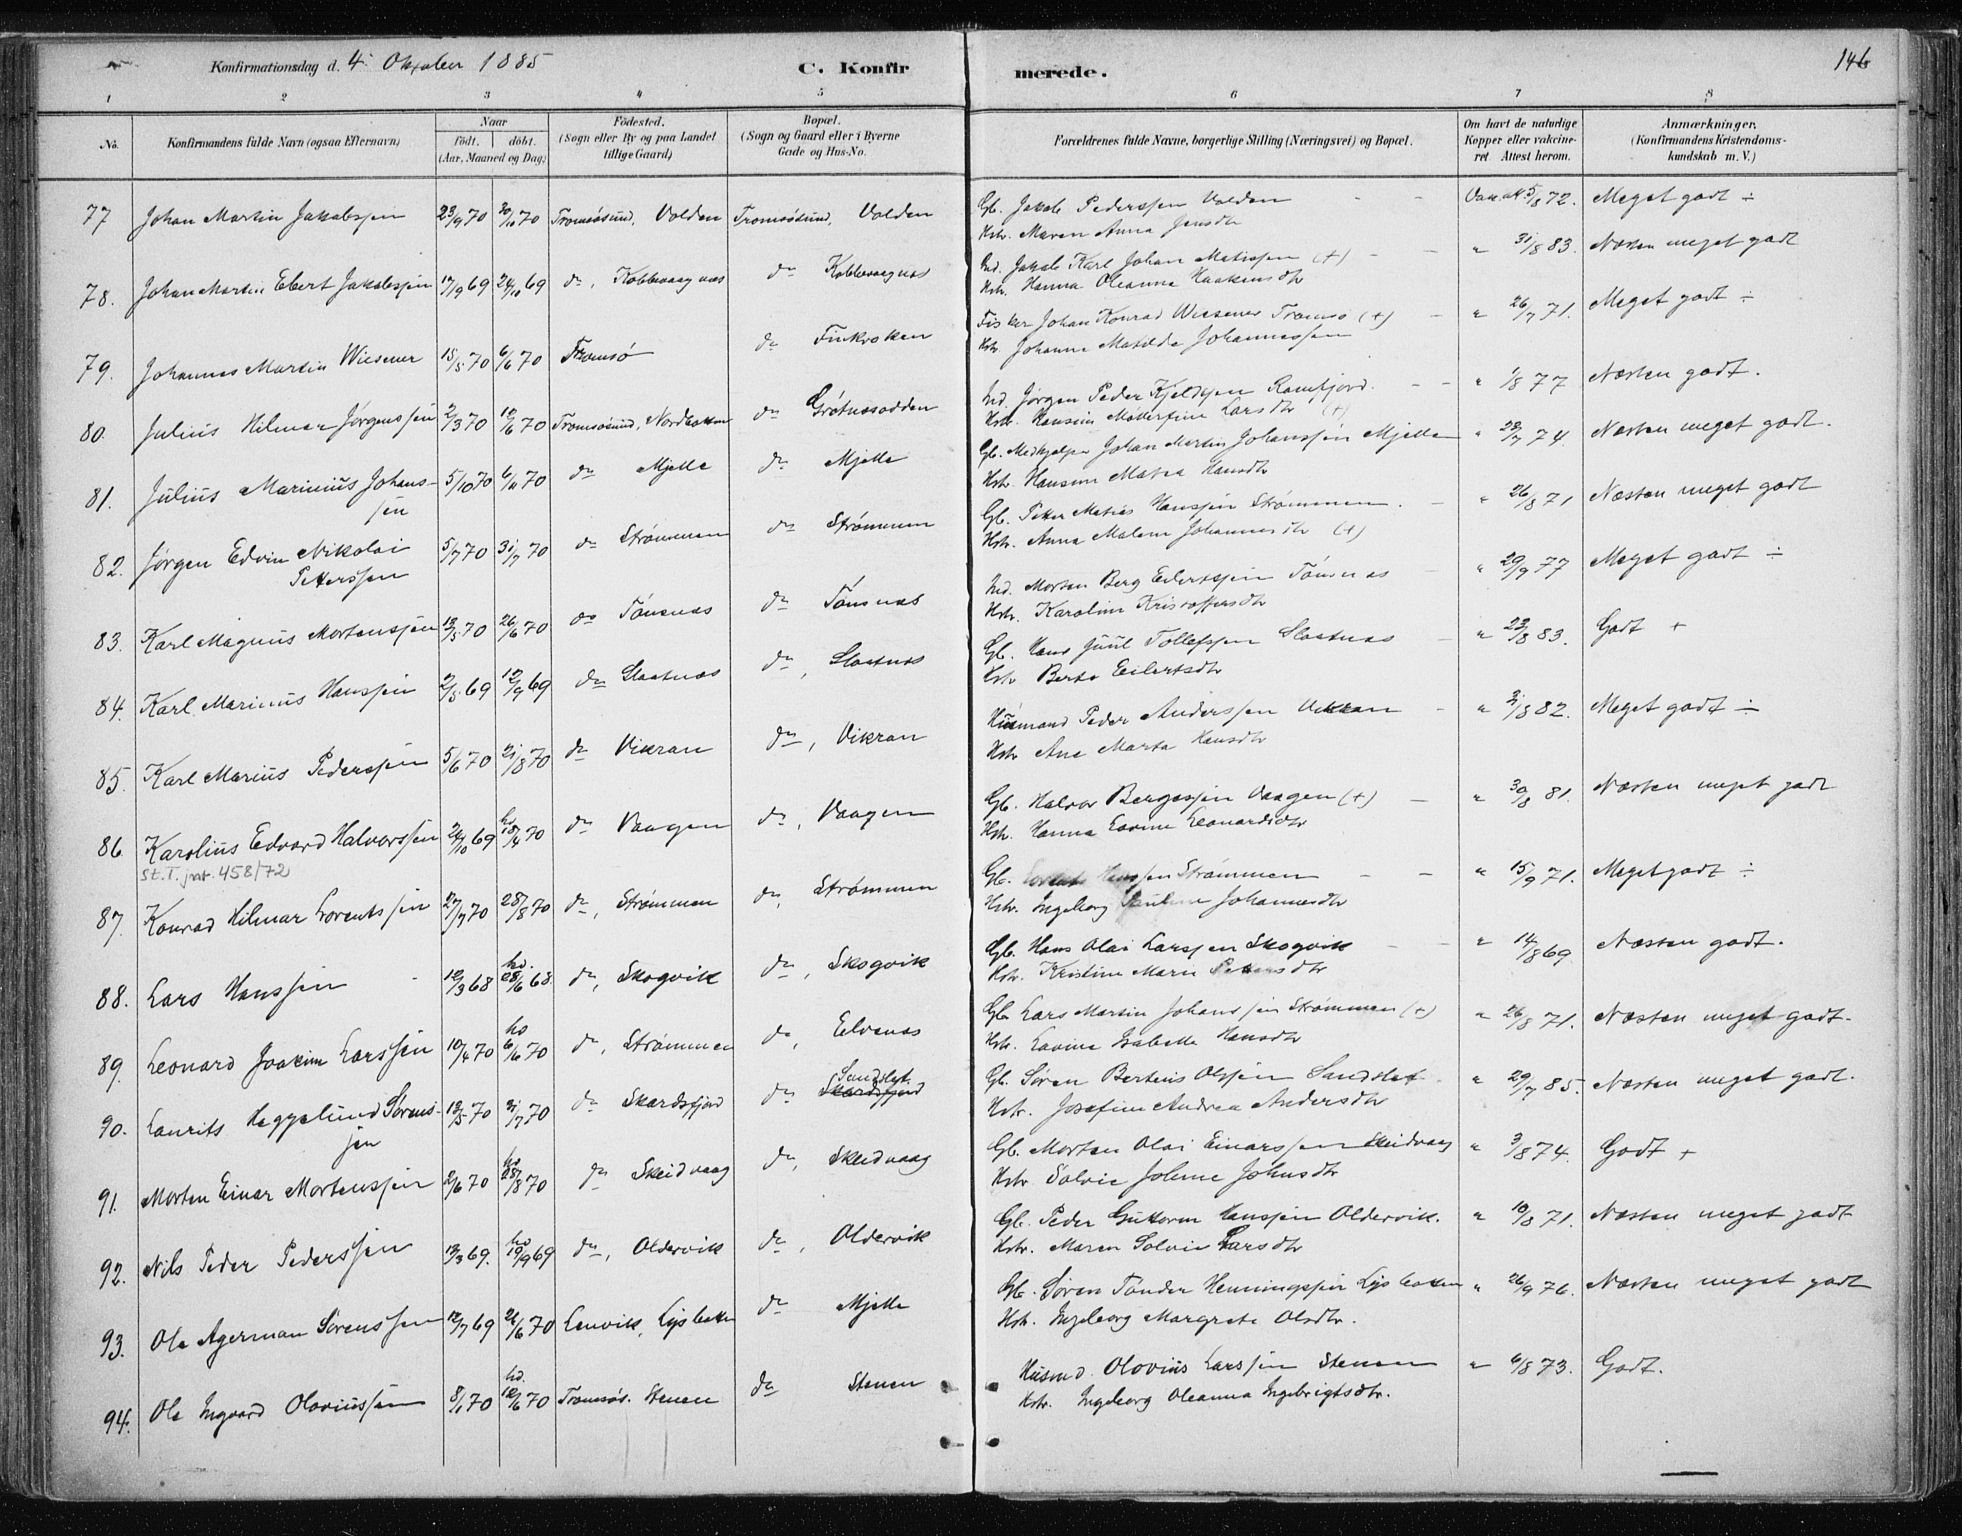 Konfirmationsdag d. 4. Oktober 1885
C. Konfirmerede.
146
1 2 3 4 5 6 7 8
No. Konfirmandens fulde Navn (ogsaa Efternavn) Naar født. døbt. (Aar, Maaned og Dag) Fødested. (Sogn eller By og paa Landet tillige Gaard) Bopæl. (Sogn og Gaard eller i Byerne Gade og Hus-No. Forældrenes fulde Navne, borgerlige Stilling (Næringsvei) og Bopæl. Om havt de naturlige Kopper eller vakcineret Attest herom. Anmærkninger. (Konfirmandens Kristendomskundskab m. V.)
77 Johan Martin Jakobssen 23/9 70 30/10 70 Tromsøsund, Volden Tromsøsund, Volden Gb. Jakob Pederssen Volden 5/8 72. Meget godt ÷
Hstr. Maren Anna Jensdtr
78. Johan Martin Ebert Jakobssen 17/9 69 24/10 69 do, Kobbevaagnæs do Kobbevaagnæs Ind. Jakob Karl Johan Matissen (+) " 31/8 83. Næsten meget godt
Hstr. Hanna Oleanna Haakensdtr
79. Johannes Martin Wiesener 15/5 70 6/6 70 Tromsø do Finkroken Fisker Johan Konrad Wiesener Tromsø (+) " 26/7 71. Meget godt ÷
Hstr. Johanna Matilde Johannessen
80. Julius Hilmar Jørgenssen 2/3 70 12/6 70 Tromsøsund, Nordbotten do Grøtnæsodden Ind. Jørgen Peder Kjeldsen Ramfjord. " 1/8 77 Næsten godt.
Hstr. Hansine Larsdtr (+)
81. Julius Marinius Johanssen 5/10 70 6/11 70 do Mjelle do Mjelle Gb. Medhjelper Johan Martin Johanssen Mjelle " 28/7 74 Næsten meget godt.
Hstr. Hansine Matea Hansdtr
82. Jørgen Edvin Nikolai Peterssen 5/7 70 31/7 70 do Strømmen do Strømmen Gb. Peter Matias Hanssen Strømmen. " 26/8 71 Næsten meget godt
Hstr. Anna Malene Johannesdtr (+)
83. Karl Magnus Mortenssen 13/5 70 26/6 70 do Tønsnæs do Tønsnæs Ind. Morten Berg Eilertssen Tønsnæs " 29/9 77 Meget godt ÷
Hstr. Karoline Kristoffersdtr
84. Karl Marinus Hanssen 2/5 69 12/9 69 do Slaatnæs do, Slaatnæs Gb. Hans Juul Tollefssen Slaatnæs " 23/8 83. Godt +
Hstr Berte Eilertsdtr
85. Karl Marius Pederssen 5/6 70 21/8 70 do Vikran do, Vikran Husmand Peder Anderssen Vikran " 21/8 82. Meget godt ÷
Hstr Ane Marta Hansdtr
86. Karolius Edvard Halvorssen 24/10 69 hd 18/4 70 do Vaagen do, Vaagen Gb. Halvor Bergessen Vaagen (+) " 30/8 81. Næsten meget godt
st. T. jnr. 458/72 Hstr. Hanna Lovine Leonardsdtr
87. Konrad Hilmar Lorentssen 27/7 70 28/8 70 do, Strømmen do, Strømmen Gb. Lorents Hanssen Strømmen " 15/9 71. Meget godt ÷
Hstr. Ingeborg Pauline Johannesdtr
88. Lars Hanssen 12/3 68 hd. 28/6 68. do, Skogvik do, Skogvik Gb. Hans Olai Larssen Skogvik " 14/8 69. Næsten godt.
Hstr. Kristine Marie Petersdtr
89. Leonard Joakim Larssen 10/4 70 hd 6/6 70 do, Strømmen do, Eidnæs Gb. Lars Martin Johanssen Strømmen (+) " 26/8 71. Næsten meget godt.
Hstr. Lovine Isabelle Hansdtr
90. Laurits Heggelund Sørenssen 12/5 70 31/7 70 do Skardsfjord do Sandslet Skardsfjord Gb. Søren Bertius Olssen Sandslet. " 29/7 85. Næsten meget godt.
Hstr. Josefine Andrea Andersdtr
91. Morten Einar Mortenssen 2/6 70 hd 28/8 70 do Skeidvaag do, Skeidvaag Gb. Morten Olai Einarssen Skeidvaag " 3/8 74. Godt +
Hstr. Solvie Jolene Johnsdtr
92. Nils Peder Pederssen 13/3 69. hd 19/9 69 do, Oldervik do, Oldervik Gb. Peder Guttorm Hanssen Oldervik. " 10/8 71. Næsten meget godt
Hstr. Maren Solvie Larsdtr
93. Ole Agerman Sørenssen 12/7 69 26/6 70 Lenvik, Lysbotn do Mjelle Gb. Søren Tønder Henningssen Lysbotn " 26/9 76. Næsten meget godt
Hstr. Ingeborg Margrete Olsdtr.
94. Ole Ingvard Oloviussen 8/1 70 hd. 12/6 70 Tromsøs. Stenen do Stenen Husmd Olovius Larssen Stenen " 6/8 73. Godt.
Hstr. Ingeborg Oleanna Ingebrigtsdtr.